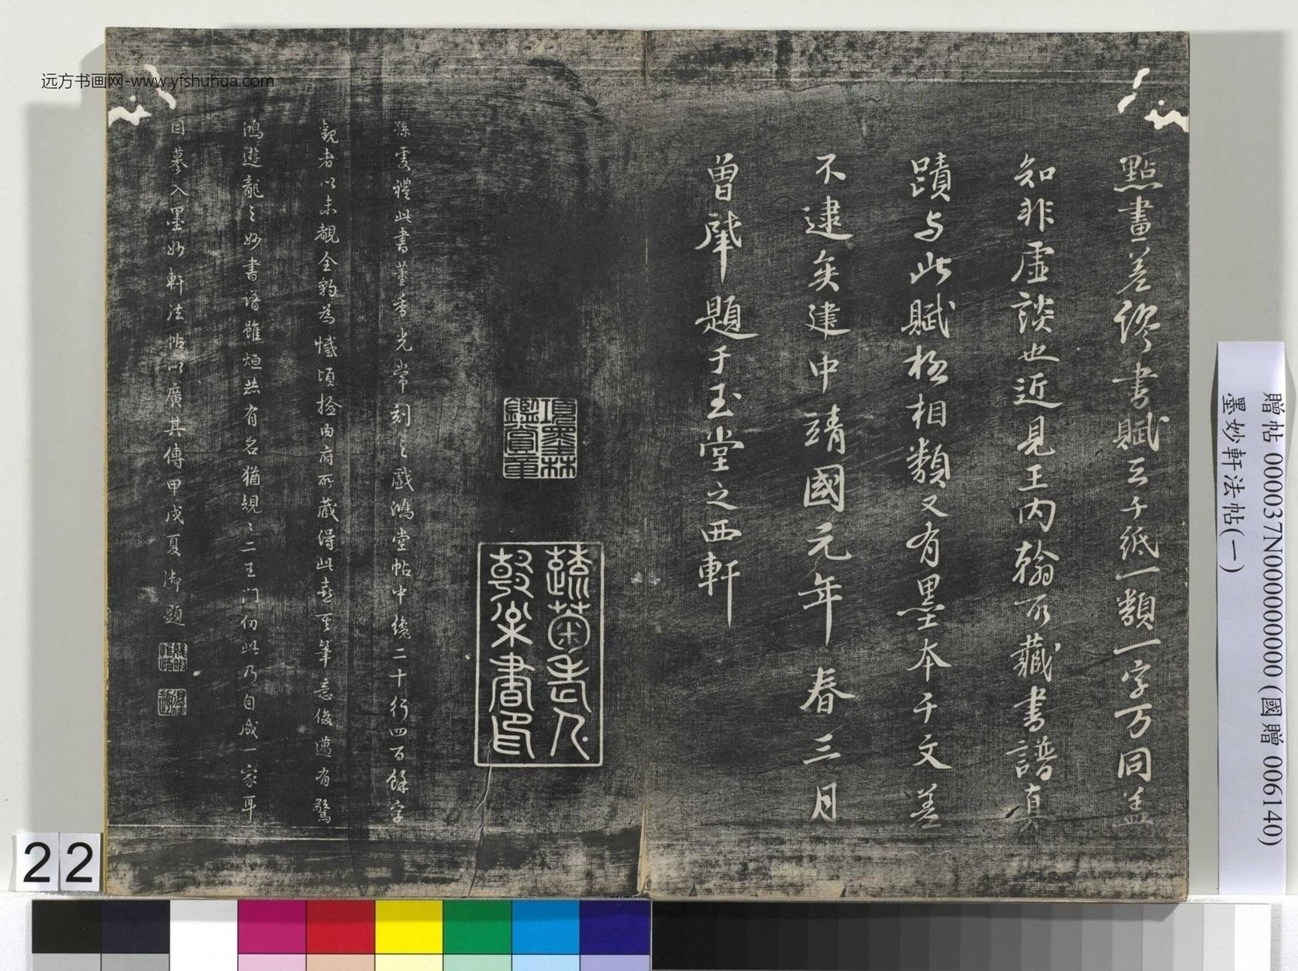 點畫差謬書賦云千紙一類一字万同盖
知非虛談也近見王內翰所藏書譜真
蹟与此賦極相類又有墨本千文差
不逮矣建中靖國元年春三月
題于玉堂之西軒
項墨林
鑑賞章
蔬菜老人
書印
孫虔禮此書董香光常刻之戲鴻堂帖中僅二十行四百餘字
觀者以未覩全豹為憾頃撿內府所藏得此
筆意俊邁有驚
鴻遊龍之妙書譜雖烜赫有名猶規規二王門仞此乃自成一家耳
因摹入墨妙軒法帖以廣其傳甲戌夏御題
远方书画网-www.yfshuhua.com
贈帖 000037N000000000 (國贈 006140)
墨妙軒法帖(一)
22